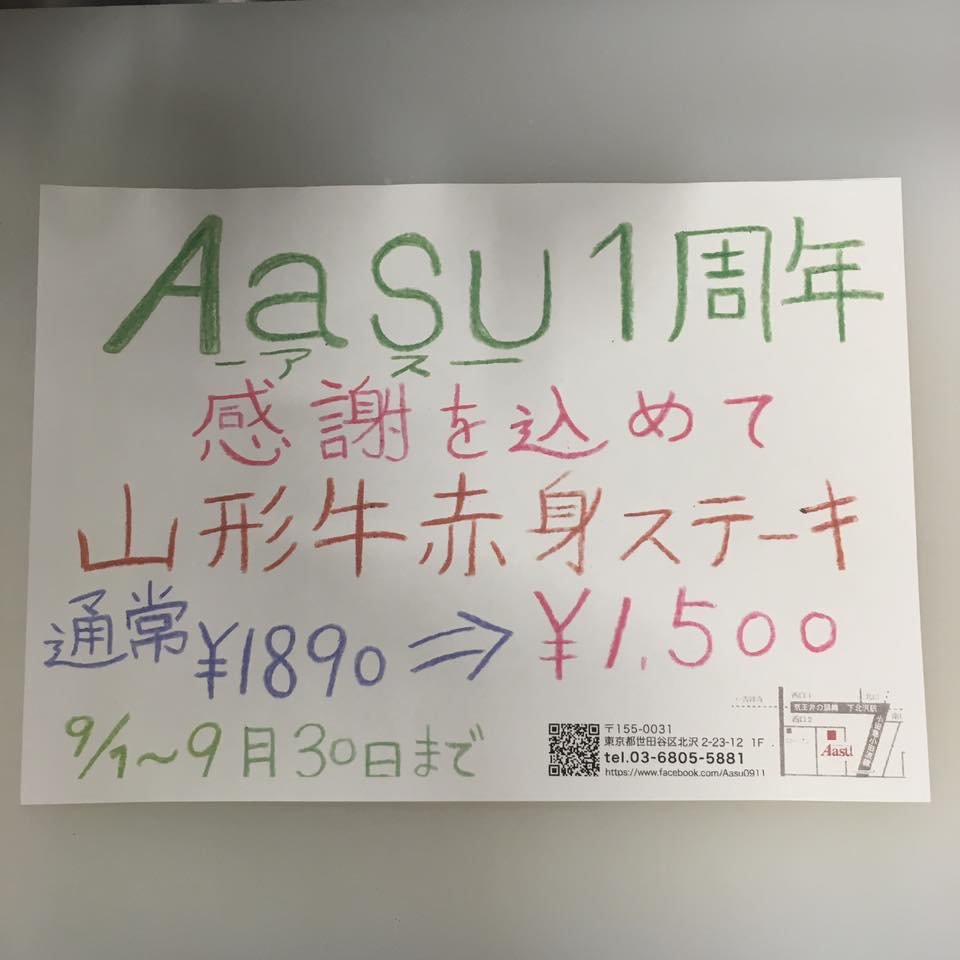 Aasu1周年
ーアスー
感謝を込めて
山形牛赤身ステーキ
通常¥1890⇒¥1,500
9/1～9月30日まで
〒155-0031
東京都世田谷区北沢 2-23-12 1F
tel.03-6805-5881
https://www.facebook.com/Aasu0911
西口1
北口
京王井の頭線 下北沢駅
西口2
小田急小田原線
Aasu